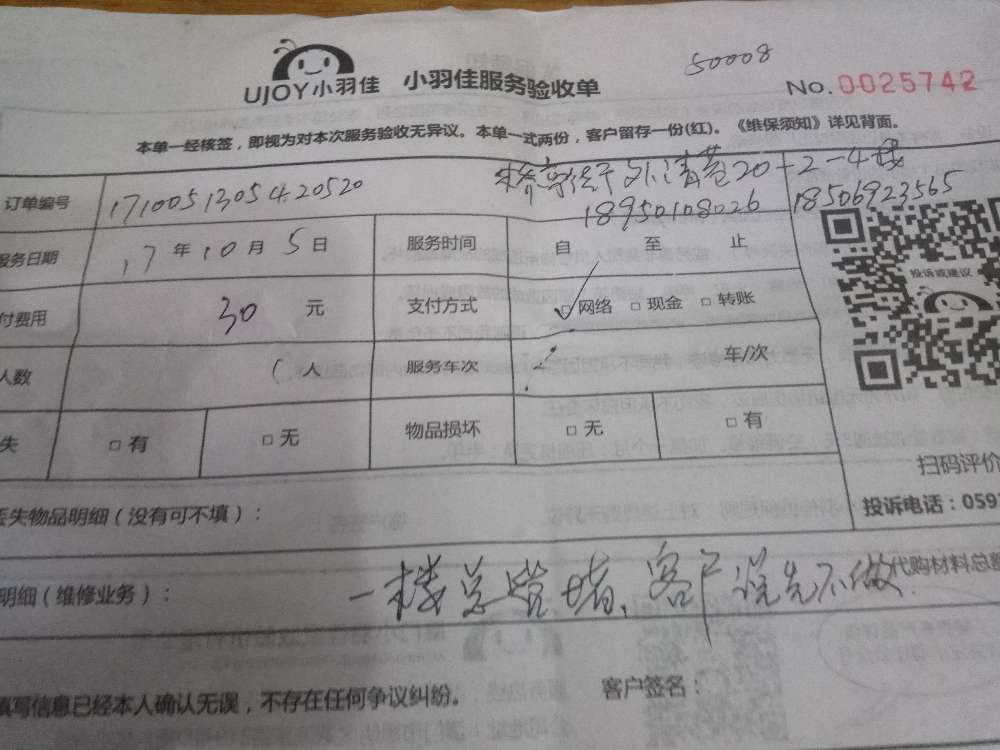 50008
UJOY小羽佳 小羽佳服务验收单 No.0025742
本单一经核签，即视为对本次服务验收无异议。本单一式两份，客户留存一份(红)。《维保须知》详见背面。
20-2-4
订单编号 1710051305420520 18950108026 18506923565
服务日期 17年10月5日 服务时间 自 至 止
投诉或建议
付费用 30 元 支付方式 □网络 □现金 □转账
人数 1人 服务车次 车/次
失 □有 □无 物品损坏 □无 □有
扫码评价
丢失物品明细（没有可不填）： 投诉电话：059
明细（维修业务）： 一楼总管堵、客户说先不做 代购材料总额
填写信息已经本人确认无误，不存在任何争议纠纷。 客户签名：